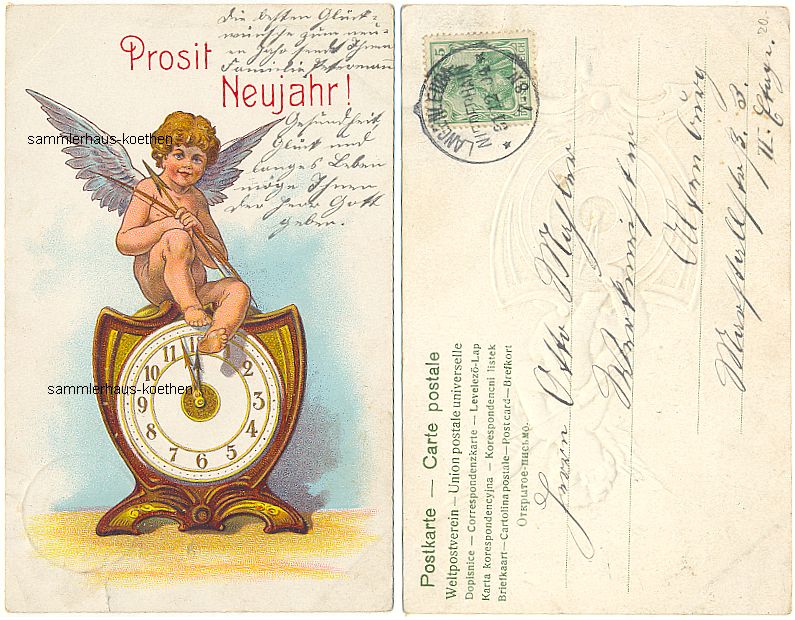 Die besten Glück-
wünsche zum neu-
en Jahr sendt Ihnen
Familie Petermann
Prosit
Neujahr!
Gesundheit
Glück und
langes Leben
möge Ihnen
der Herr Gott
geben.
sammlerhaus-koethen
sammlerhaus-koethen
11 1 2 3 4 5 6 7 8 9 10
20.-
5
Herrn Otto
Werkmeister
Altenburg
II. Etage.
Postkarte — Carte postale
Weltpostverein — Union postale universelle
Dopisnice — Correspondenzkarte — Levelező-Lap
Karta korespondencyjna — Korespondencni listek
Briefkaart — Cartolina postale — Post card — Brefkort
Открытое-письмо.